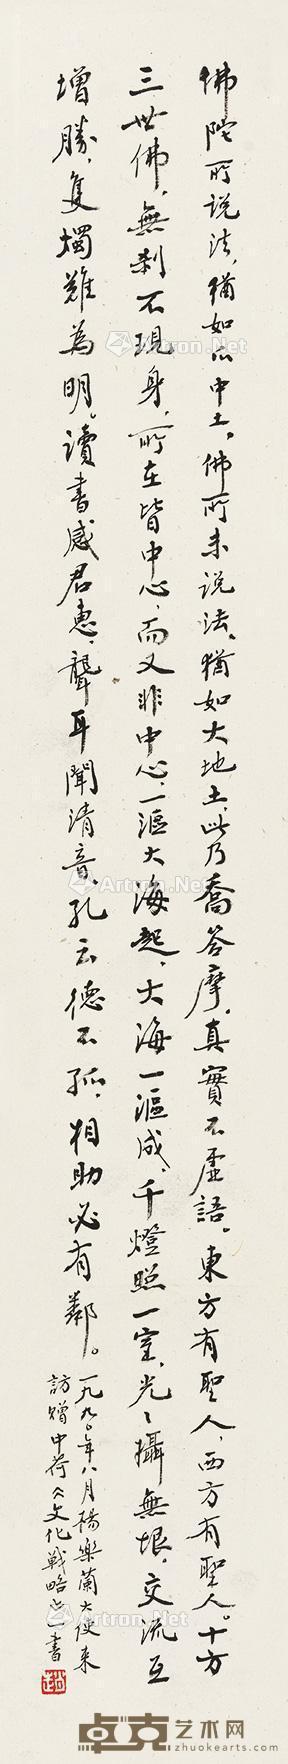 佛陀所説法，猶如爪中土。佛所未説法，猶如大地土。此乃喬答摩，真實不虛語。東方有聖人，西方有聖人。十方
三世佛，無刹不現身，所在皆中心，而又非中心，一漚大海起，大海一漚成，千燈照一室，光々攝無垠，交流互
增勝，隻燭難為明。讀書感君惠，聾耳聞清音，孔云德不孤，相助必有鄰。
一九九〇年八月楊樂蘭大使来
訪贈中荷文化戰略書
Artron.Net
卓克艺术网
zhuokearts.com